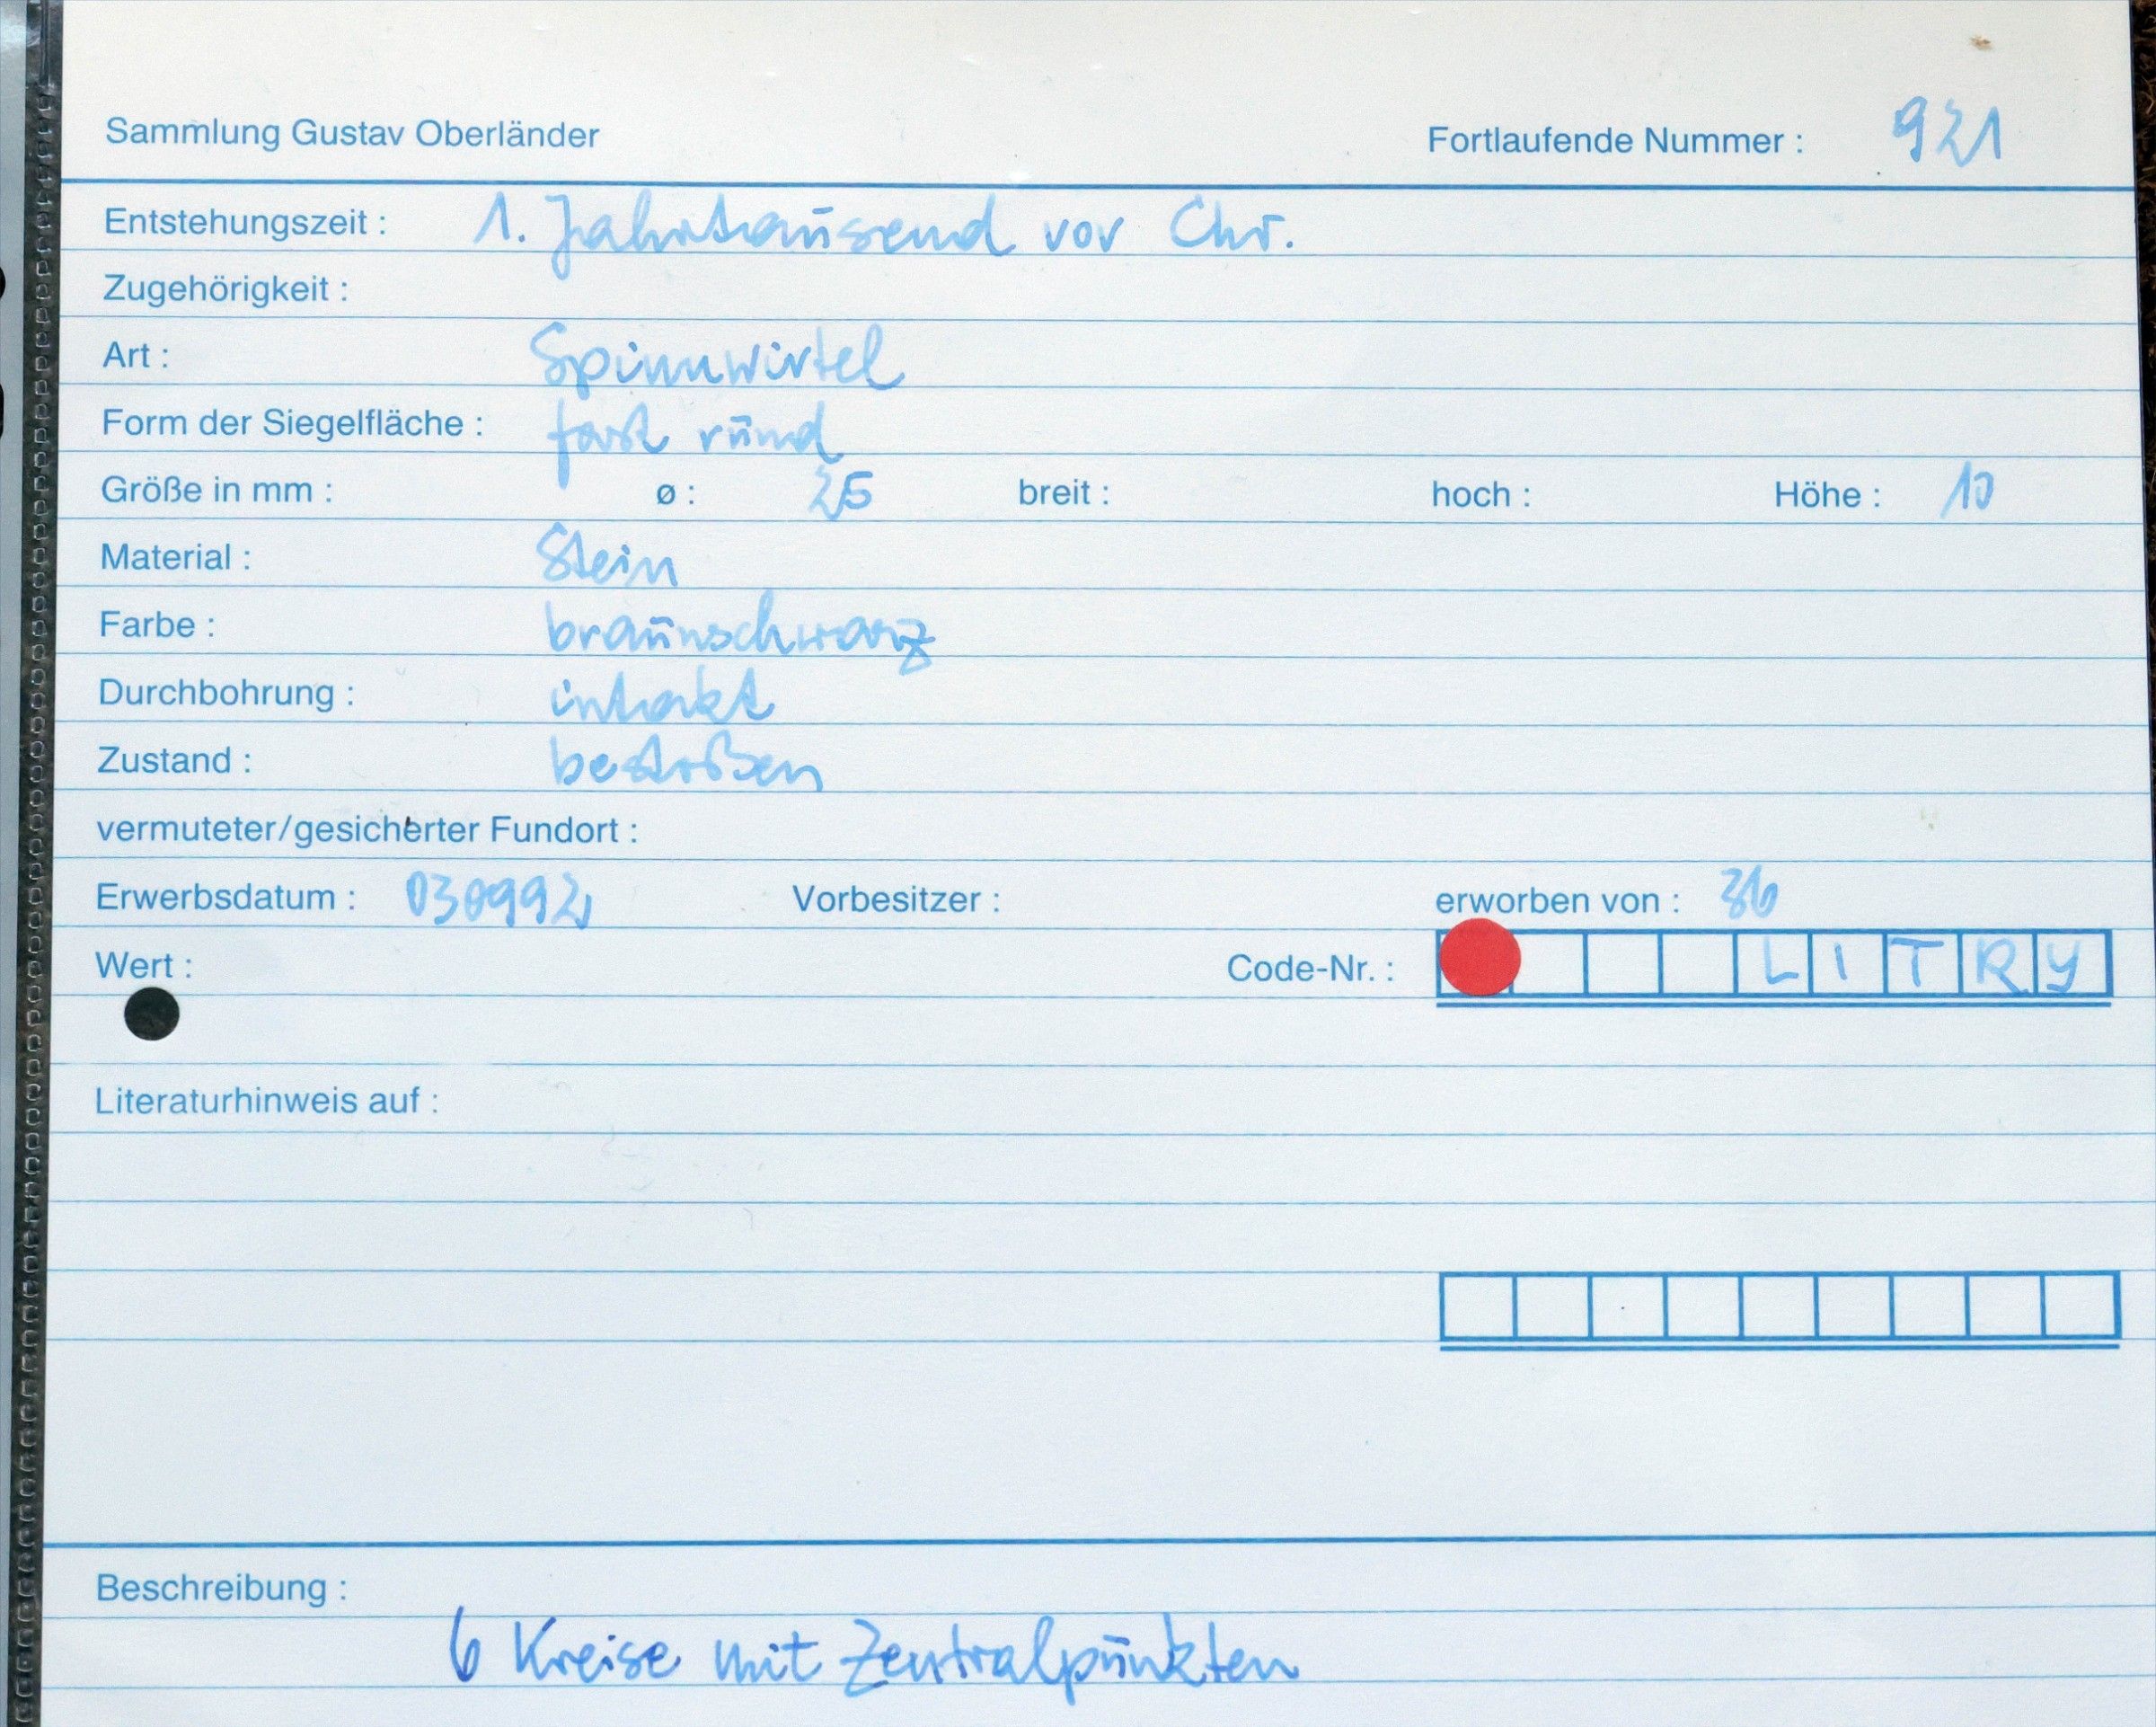 Sammlung Gustav Oberländer Fortlaufende Nummer : 921
Entstehungszeit : 1. Jahrtausend vor Chr.
Zugehörigkeit :
Art : Spinnwirtel
Form der Siegelfläche : fast rund
Größe in mm : ø : 25 breit : hoch : Höhe : 10
Material : Stein
Farbe : braunschwarz
Durchbohrung : intakt
Zustand : bestoßen
vermuteter/gesicherter Fundort :
Erwerbsdatum : 030992 Vorbesitzer : erworben von : 36
Wert : Code-Nr. : LITRY
Literaturhinweis auf :
Beschreibung :
6 Kreise mit Zentralpunkten